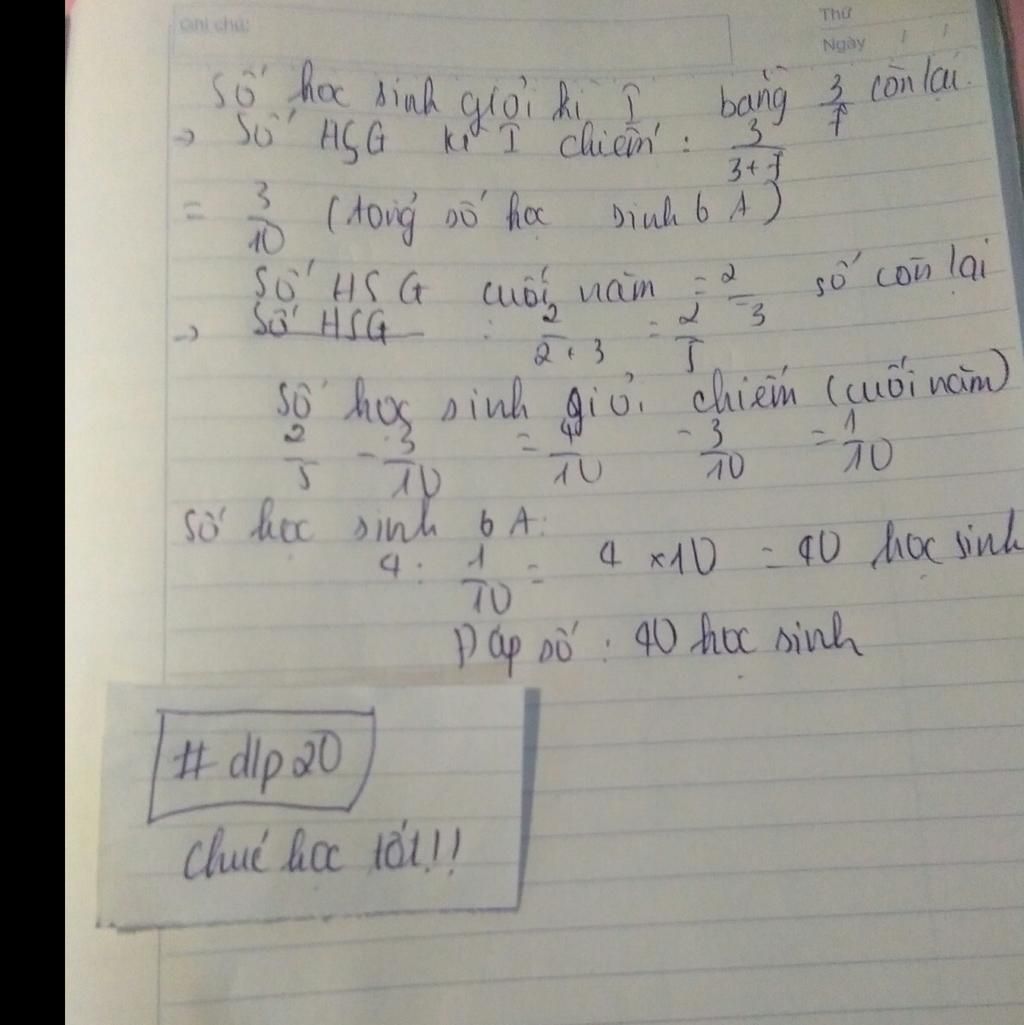 Ghi chú:
Thứ
Ngày / /
Số học sinh giỏi kì I bằng 3/7 còn lại.
→ Số HSG kì I chiếm : 3/(3+7)
= 3/10 (tổng số học sinh 6 A)
Số HSG cuối năm = 2/3 số còn lại
→ Số HSG : 2/(2+3) = 2/5
Số học sinh giỏi chiếm (cuối năm)
2/5 - 3/10 = 4/10 - 3/10 = 1/10
Số học sinh 6 A:
4 : 1/10 = 4 x 10 = 40 học sinh
Đáp số : 40 học sinh
# dlp20
Chúc học tốt!!